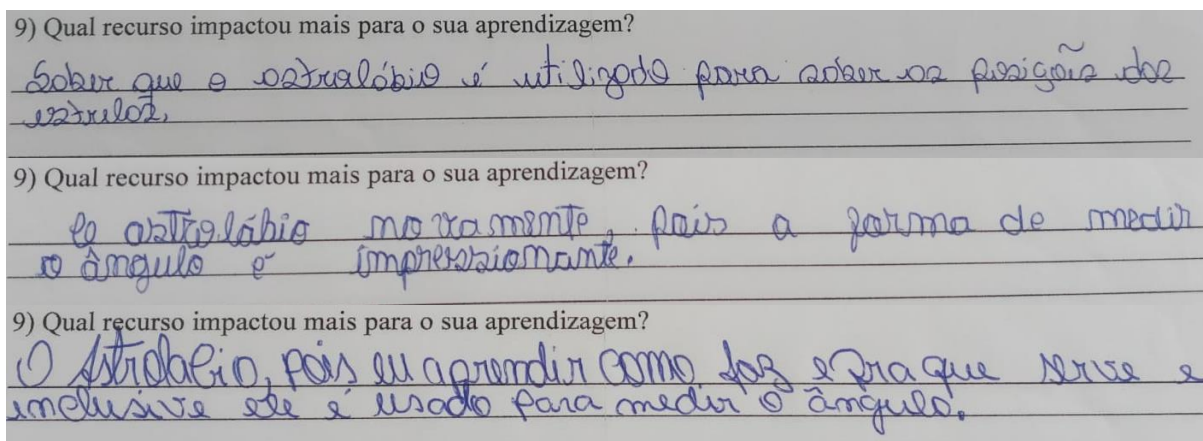 9) Qual recurso impactou mais para o sua aprendizagem?
Saber que o astralábio é utilizado para saber as posições das
estrelas.
9) Qual recurso impactou mais para o sua aprendizagem?
O astrolábio novamente, pois a forma de medir
o ângulo é impressionante.
9) Qual recurso impactou mais para o sua aprendizagem?
O Astrolabio, pois eu aprendir como faz e pra que serve e
inclusive ele é usado para medir o ângulo.